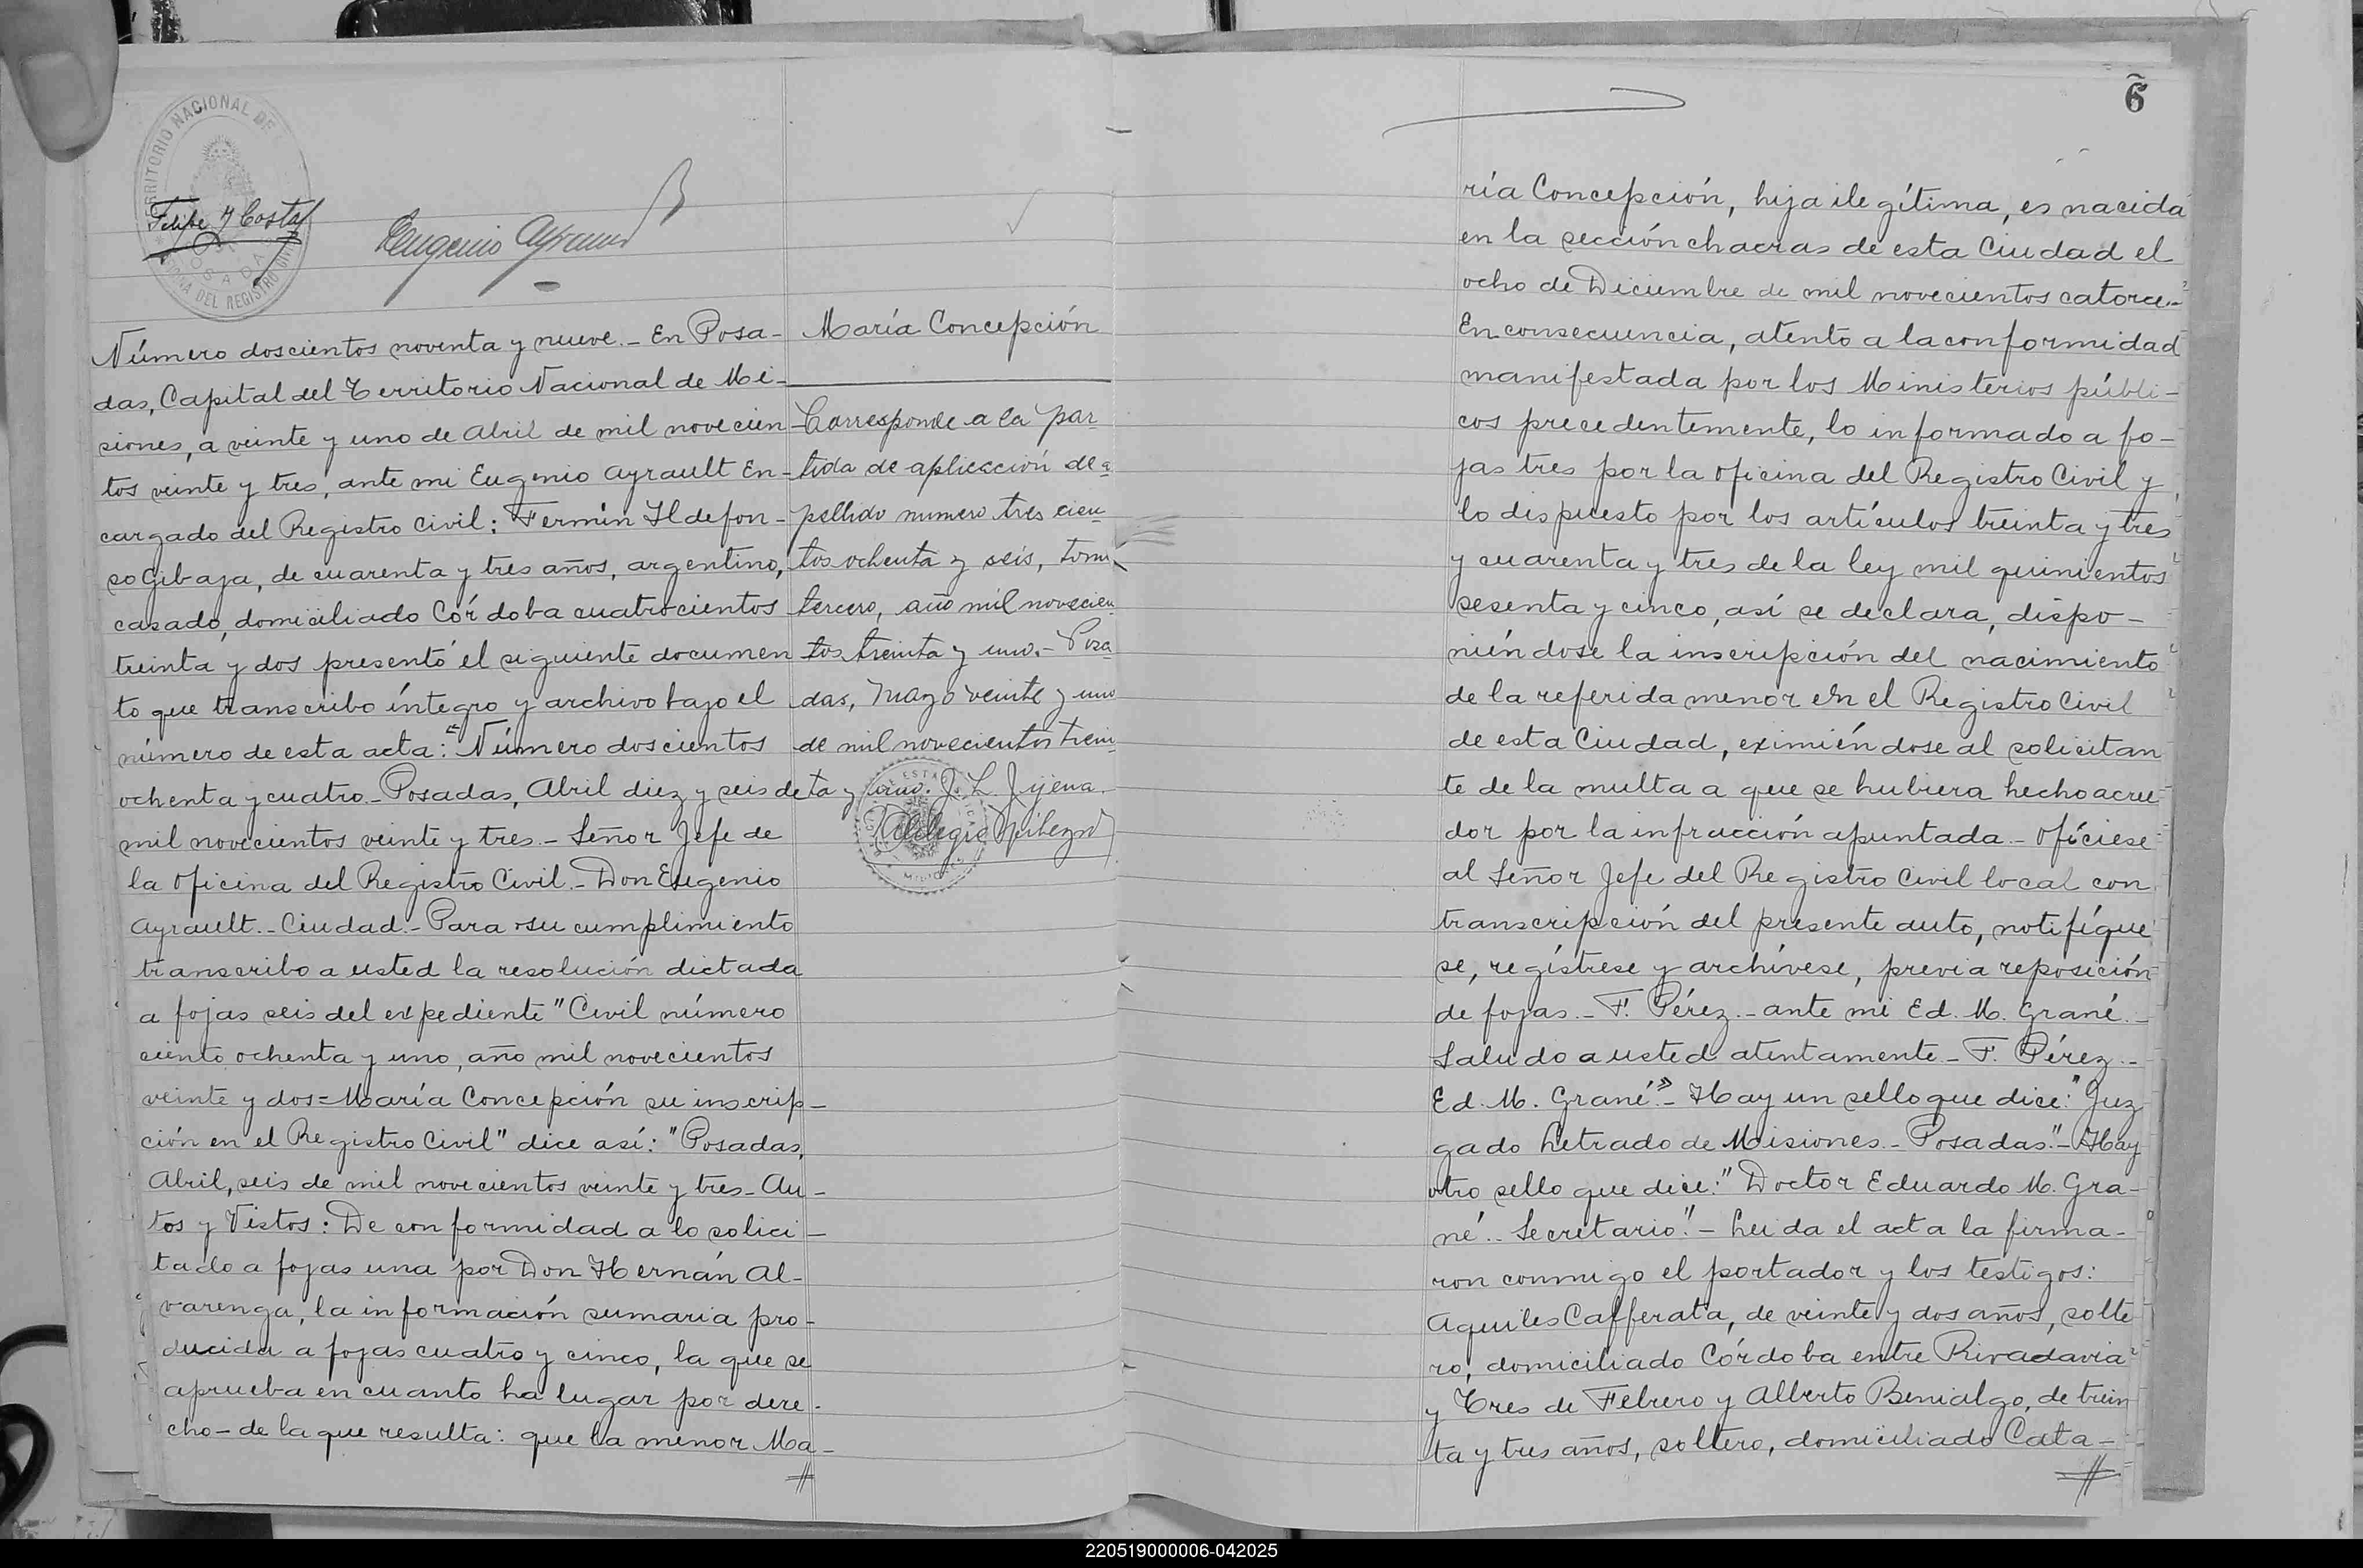 TERRITORIO NACIONAL DE
POSADAS
OFICINA DEL REGISTRO CIVIL
Felipe Y Costa
Eugenio Ayrault
Número doscientos noventa y nueve.- En Posa-
das, Capital del Territorio Nacional de Mi-
siones, a veinte y uno de Abril de mil novecien
tos veinte y tres, ante mi Eugenio Ayrault En-
cargado del Registro Civil: Fermín Ildefon-
so Gibaja, de cuarenta y tres años, argentino,
casado, domiciliado Córdoba cuatrocientos
treinta y dos presentó el siguiente documen
to que transcribo íntegro y archivo bajo el
número de esta acta: "Número doscientos
ochenta y cuatro - Posadas, Abril diez y seis de
mil novecientos veinte y tres.- Señor Jefe de
la Oficina del Registro Civil.- Don Eugenio
Ayrault.- Ciudad.- Para su cumplimiento
transcribo a usted la resolución dictada
a fojas seis del expediente "Civil número
ciento ochenta y uno, año mil novecientos
veinte y dos = María Concepción su inscrip-
ción en el Registro Civil" dice así: "Posadas,
Abril, seis de mil novecientos veinte y tres - Au-
tos y Vistos: De conformidad a lo solici-
tado a fojas una por Don Hernán Al-
varenga, la información sumaria pro-
ducida a fojas cuatro y cinco, la que se
aprueba en cuanto ha lugar por dere-
cho - de la que resulta: que la menor Ma-
María Concepción
Corresponde a la par
tida de aplicación de a
pellido numero tres cien
tos ochenta y seis, tomo
tercero, año mil novecien
tos treinta y uno.- Posa
das, Mayo veinte y uno
de mil novecientos trein
ta y uno. J. L. Jijena.
6
ría Concepción, hija ilegítima, es nacida
en la sección chacras de esta Ciudad el
ocho de Diciembre de mil novecientos catorce.-
En consecuencia, atento a la conformidad
manifestada por los Ministerios públi-
cos precedentemente, lo informado a fo-
jas tres por la Oficina del Registro Civil y
lo dispuesto por los artículos treinta y tres
y cuarenta y tres de la ley mil quinientos
sesenta y cinco, así se declara, dispo-
niéndose la inscripción del nacimiento
de la referida menor en el Registro Civil
de esta Ciudad, eximiéndose al solicitan
te de la multa a que se hubiera hecho acree
dor por la infracción apuntada.- Ofíciese
al Señor Jefe del Registro Civil local con
transcripción del presente auto, notifíque
se, regístrese y archívese, previa reposición
de fojas.- F. Pérez.- ante mi Ed. M. Grané.-
Saludo a usted atentamente - F. Pérez.-
Ed. M. Grané".- Hay un sello que dice: "Juz
gado Letrado de Misiones - Posadas".- Hay
otro sello que dice: "Doctor Eduardo M. Gra-
né.- Secretario".- Leida el acta la firma-
ron conmigo el portador y los testigos:
Aquiles Cafferata, de veinte y dos años, solte
ro, domiciliado Córdoba entre Rivadavia
y Tres de Febrero y Alberto Benialgo, de trein
ta y tres años, soltero, domiciliado Cata-
220519000006-042025